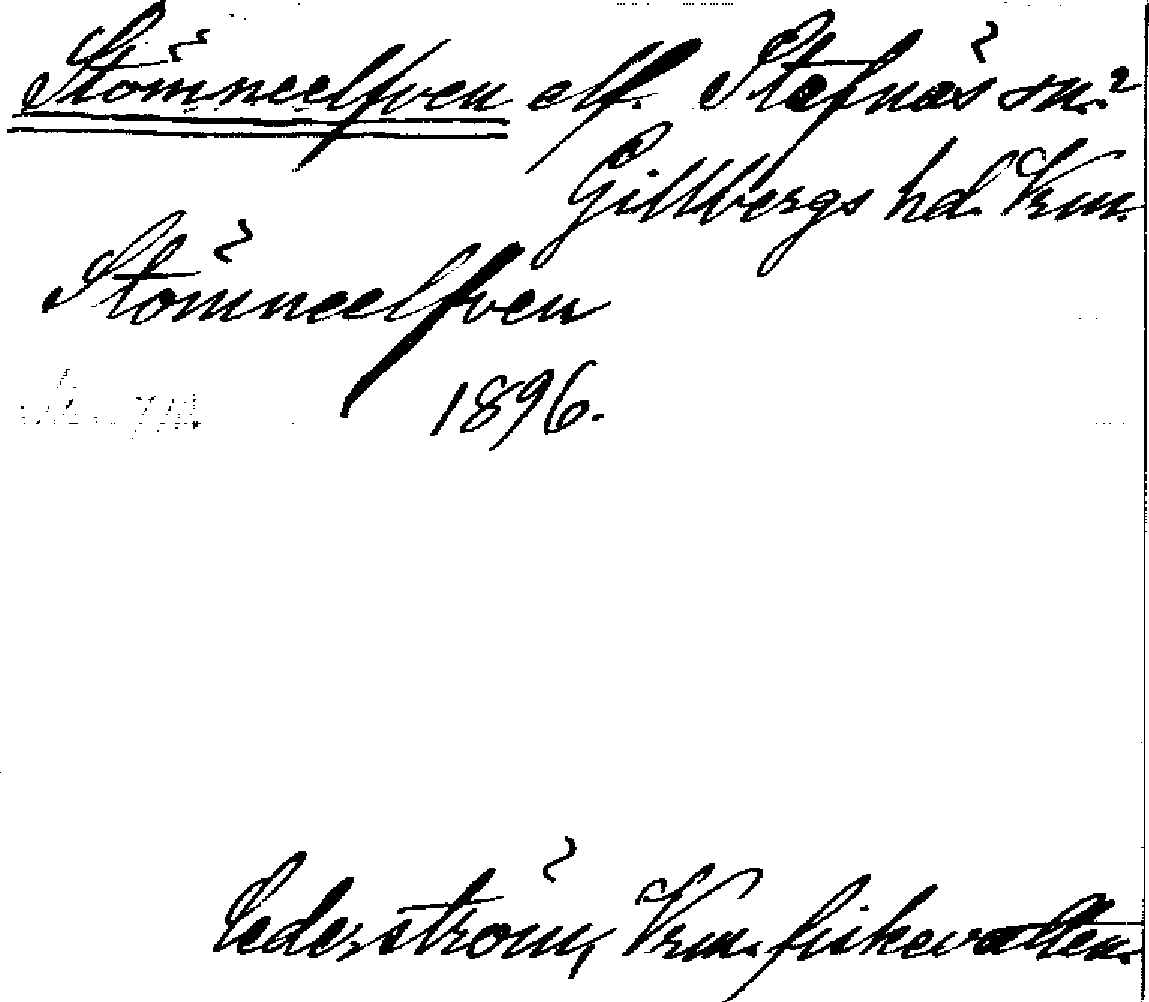 Stömneelfven elf. Stafnäs sn.?
Gillbergs hd. Vrm.
Stömneelfven
1896.
Cederström, Vrm. fiskevatten.